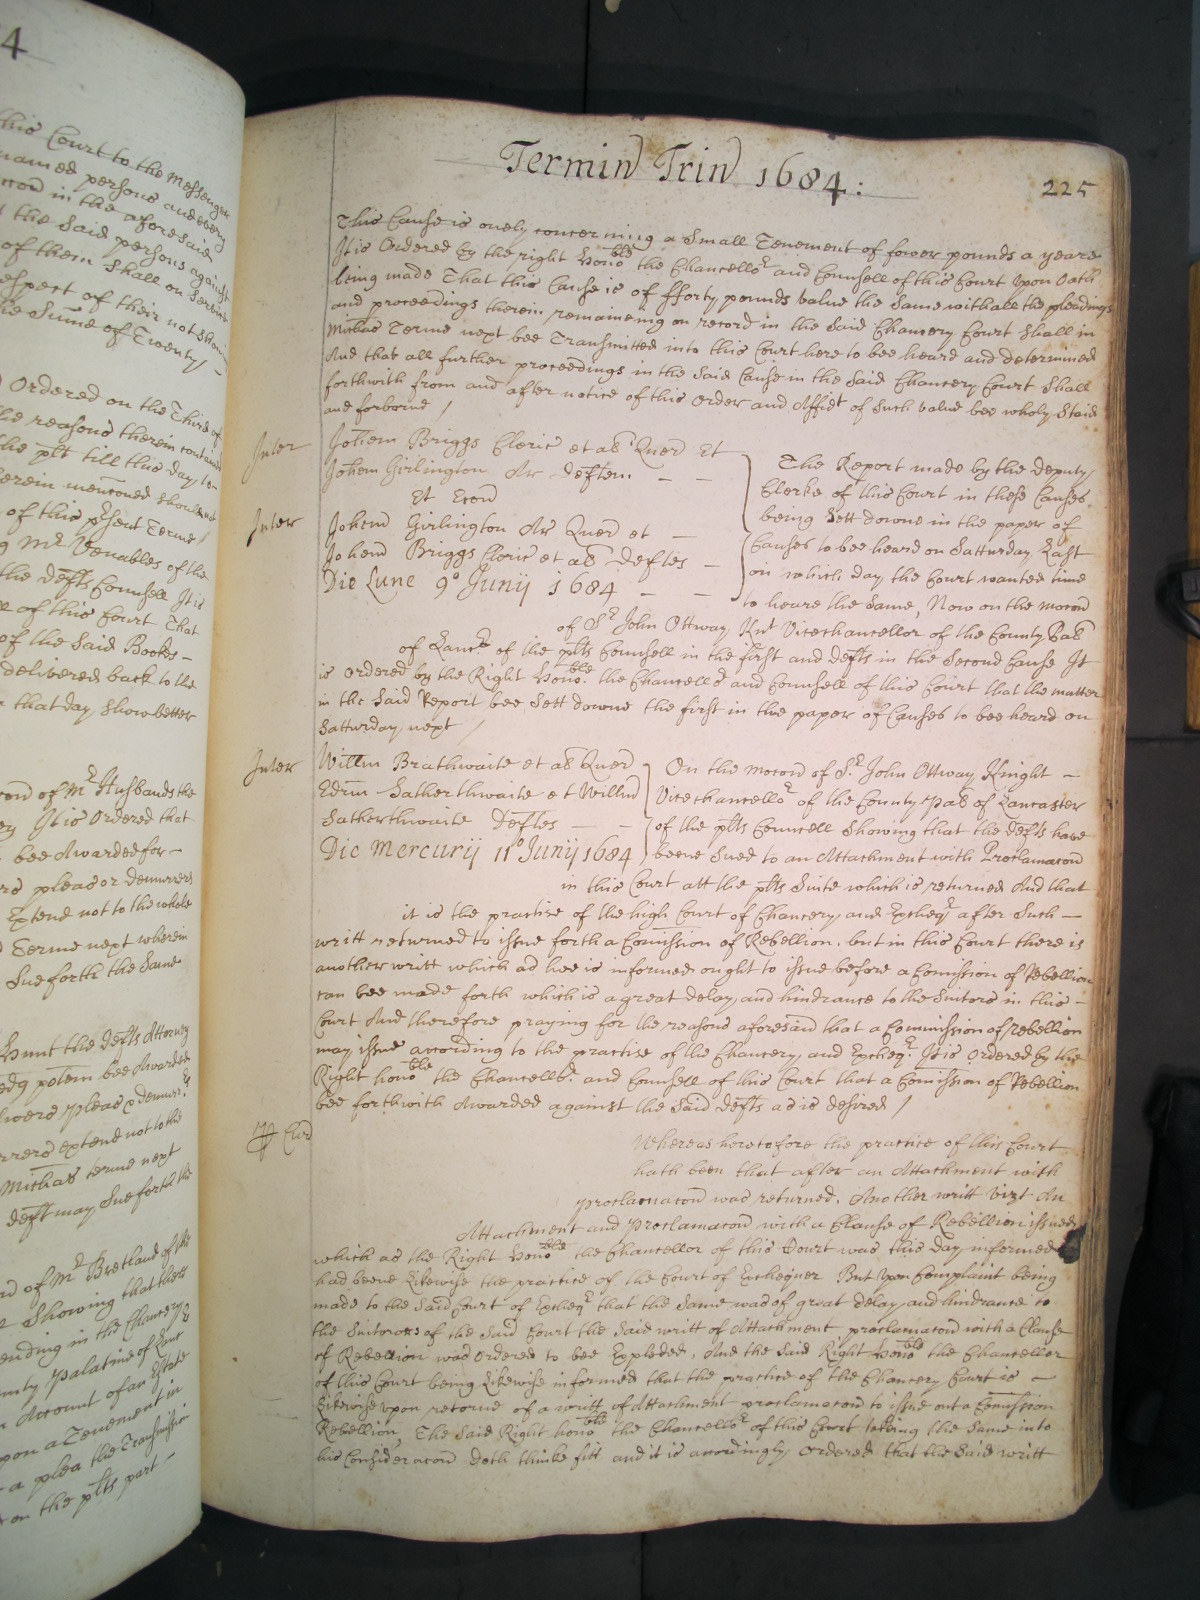 4
this Court to the Messenger
named persons and every
in the aforesaid
the said persons against
of them shall on
respect of their not
the Sume of Twenty
Ordered on the Third of
the reasons therein
the plt till this day
herein menconed should not
of this psent Terme /
Mr Venables of the
the defts Counsell It is
of this Court That
of the said Books –
delivered back to the
that day show better
of Mr Husbands the
It is Ordered that
bee Awarded for –
pleas or demurrers
Extend not to the whole
Terme next wherein
Sue forth the same
Hunt the defts Attorney
potem bee Awarded
pleas & demurrs
extend not to the
Michas terme next
deft may Sue forth the
of Mr Bretland of the
Showing that there
pending in the Chancery
Palatine of Lanc
Account of an Estate
upon a Tenement in
a plea the Transmission
on the plts part –
Termin Trin 1684:
225
This Cause is onely concerning a Small Tenement of fower pounds a yeare
It is Ordered by the right honoble the Chancellor and Counsell of this Court Upon Oath
being made That this Cause is of fforty pounds value the same withall the pleadings
and proceedings therein remaineing on record in the said Chancery Court shall in
Michas Terme next bee Transmitted into this Court here to bee heard and determined
And that all further proceedings in the said Cause in the said Chancery Court shall
forthwith from and after notice of this Order and Affidt of such value bee wholy Staid
and forborne /
Inter Johem Briggs Cleric et als Quer Et
Johem Girlington Ar deftem – –
Et Econ
Inter Johem Girlington Ar Quer et –
Johem Briggs Cleric et als deftes –
Die Lune 9o Junij 1684 – –
The Report made by the deputy
Clerke of this Court in these Causes
being Sett downe in the paper of
Causes to bee heard on Satturday Last
on which day the Court wanted time
to heare the same, Now on the mocon
of Sr John Ottway Knt Vicechancellor of the County Pal
of Lancr of the plts Counsell in the first and defts in the Second Cause It
is ordered by the Right honoble the Chancellr and Counsell of this Court that the matter
in the said Report bee Sett downe the first in the paper of Causes to bee heard on
Satturday next /
Inter Willm Brathwaite et als Quer
Edrm Satherthwaite et Willm
Satherthwaite Deftes – –
Die Mercurij 11o Junij 1684
On the mocon of Sr John Ottway Knight –
Vicechancellor of the County Pal of Lancaster
of the plts Councell Showing that the defts have
beene Sued to an Attachment with Proclamacon
in this Court att the plts Suite which is returned And that
it is the practise of the high Court of Chancery and Excheqr after such –
writt returned to issue forth a Comission of Rebellion, but in this Court there is
another writt which as hee is informed ought to issue before a Comission of Rebellion
can bee made forth which is a great delay and hindrance to the Suitors in this –
Court And therefore praying for the reasons aforesaid that a Commission of rebellion
may issue according to the practise of the Chancery and Excheqr. It is ordered by the
Right honoble the Chancellor and Counsell of this Court that a Comission of Rebellion
bee forthwith Awarded against the said defts as is desired /
Whereas heretofore the practise of this Court
hath been that after an Attachment with
proclamacon was returned, Another writt vizt An
Attachment and Proclamacon with a Clause of Rebellion issued
which as the Right honoble the Chancellor of this Court was this day informed
had beene Likewise the practise of the Court of Exchequer But Upon Complaint being
made to the said Court of Excheqr that the same was of great delay and hindrance to
the Suitors of the said Court the said writt of Attachment proclamacon with a Clause
of Rebellion was ordered to bee Exploded, And the said Right honoble the Chancellor
of this Court being Likewise informed that the practise of the Chancery Court is –
Likewise upon retorne of a writt of Attachment proclamacon to issue out a Comission
Rebellion, The said Right honoble the Chancellor of this Court taking the same into
his Consideracon doth thinke fitt and it is accordingly ordered that the said writt